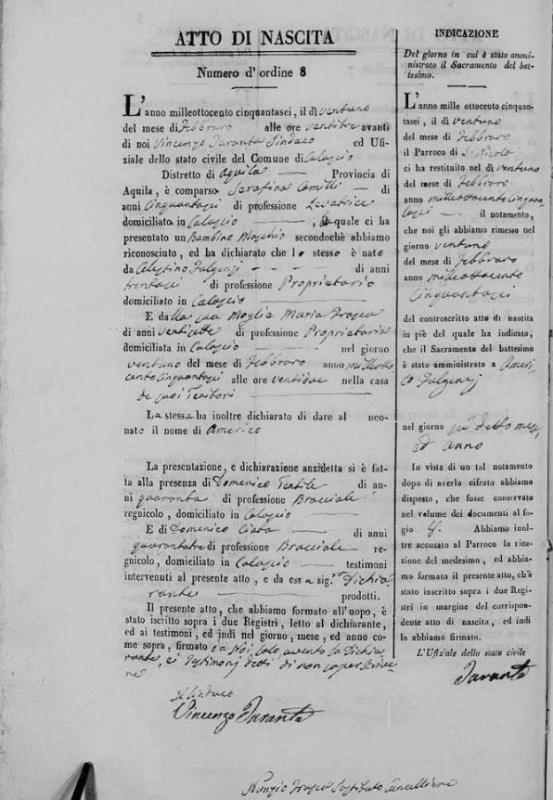 ATTO DI NASCITA
Numero d'ordine 8
L'anno milleottocento cinquantasei, il dì ventuno
del mese di Febbraro alle ore ventitre avanti
di noi Vincenzo Taranta Sindaco ed Ufi-
ziale dello stato civile del Comune di Calascio
Distretto di Aquila Provincia di
Aquila, è comparsa Serafina Camilli di
anni Cinquantasei di professione Levatrice
domiciliata in Calascio, la quale ci ha
presentato un Bambino Maschio secondochè abbiamo
riconosciuto, ed ha dichiarato che lo stesso è nato
da Celestino Fulgenzj di anni
trentasei di professione Proprietario
domiciliato in Calascio
E dalla sua Moglie Maria Frasca
di anni ventisette di professione Proprietaria
domiciliata in Calascio nel giorno
ventuno del mese di Febbraro anno milleotto
cento Cinquantasei alle ore ventidue nella casa
de suoi Genitori
La stessa ha inoltre dichiarato di dare al neo-
nato il nome di Americo
La presentazione, e dichiarazione anzidetta si è fat-
ta alla presenza di Domenico Gentile di an-
ni quaranta di professione Bracciale
regnicolo, domiciliato in Calascio
E di Domenico di anni
quarantatre di professione Bracciale re-
gnicolo, domiciliato in Calascio testimoni
intervenuti al presente atto, e da essa sig.ra Dichia
rante prodotti.
Il presente atto, che abbiamo formato all'uopo, è
stato iscritto sopra i due Registri, letto al dichiarante,
ed ai testimoni, ed indi nel giorno, mese, ed anno co-
me sopra, firmato da Noi solo avendo la Dichia
rante, ei testimonj detto di non saper scrive
re
Il Sindaco
Vincenzo Taranta
Nunzio Frasca Sostituto Cancelliere
INDICAZIONE
Del giorno in cui è stato ammi-
nistrato il Sacramento del bat-
tesimo.
L'anno mille ottocento cinquan-
tasei, il dì ventuno
del mese di Febbraro
il Parroco di S. Nicola
ci ha restituito nel dì ventuno
del mese di Febbraro
anno milleottocento Cinquan
tasei il notamento,
che noi gli abbiamo rimesso nel
giorno ventuno
del mese di Febbraro
anno milleottocento
Cinquantasei
del controscritto atto di nascita
in piè del quale ha indicato,
che il Sacramento del battesimo
è stato amministrato a Ameri
co Fulgenzj
nel giorno su detto mese,
ed anno
In vista di un tal notamento
dopo di averlo cifrato abbiamo
disposto, che fosse conservato
nel volume dei documenti al fo-
gio Abbiamo inol-
tre accusato al Parroco la rice-
zione del medesimo, ed abbia-
mo formato il presente atto, ch'è
stato inscritto sopra i due Regi-
stri in margine del corrispon-
dente atto di nascita, ed indi
lo abbiamo firmato.
L'Ufiziale dello stato civile
Taranta